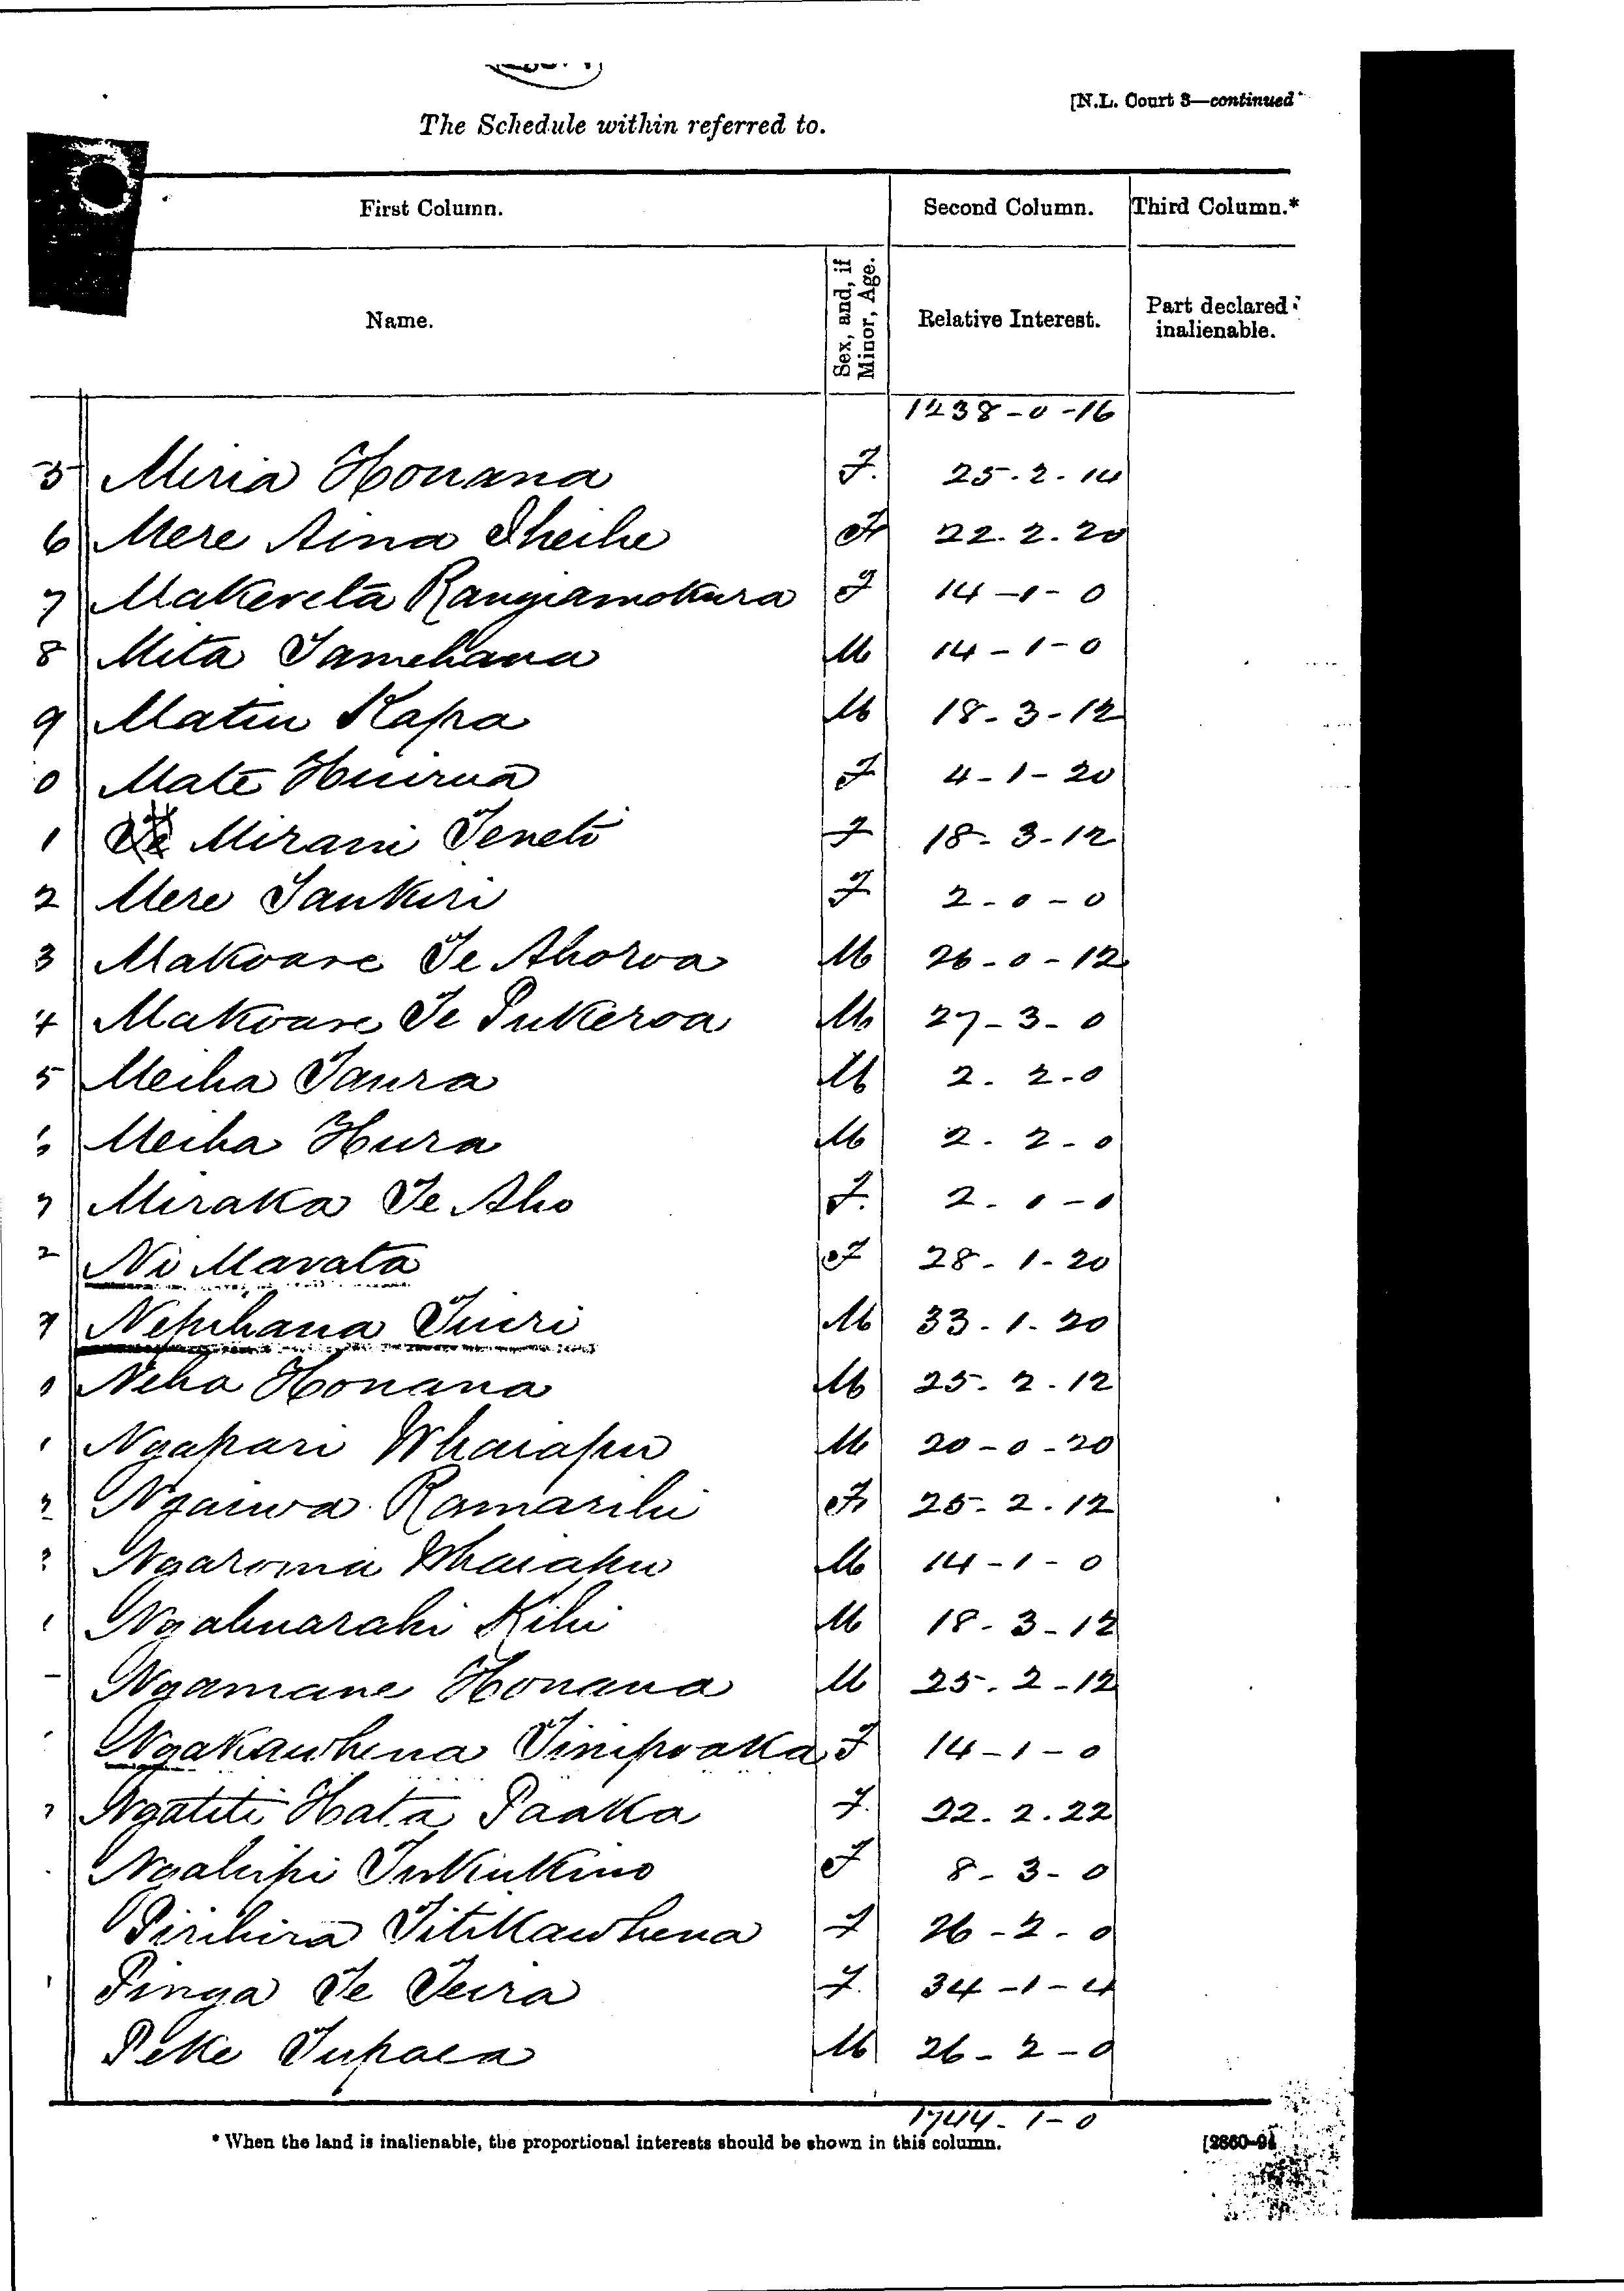 [N.L. Court 3—continued
The Schedule within referred to.
First Column. Second Column. Third Column.*
Name. Sex, and, if Minor, Age. Relative Interest. Part declared inalienable.
1238-0-16
5 Miria Honana F. 25.2.14
6 Mere Aina Iheihe F 22.2.20
7 Makereta Rangiamokura F 14-1-0
8 Mita Tamehana M 14-1-0
9 Matiu Kapa M 18-3-12
0 Mate Huirua F 4-1-20
1 Mirani Teneti F 18-3-12
2 Mere Taukiri F 2-0-0
3 Makoare Te Ahoroa M 26-0-12
4 Makoare Te Pukeroa M 27-3-0
5 Meiha Taura M 2.2-0
Meiha Hura M 2.2-0
7 Miraka Te Aho F. 2-0-0
Ni Marata F 28-1-20
9 Nepihana Tuiri M 33-1-20
0 Neha Honana M 25.2.12
1 Ngapari Whaiapu M 20-0-20
2 Ngaiwa Ramarihi F 25.2.12
3 Ngaroma Whaiapu M 14-1-0
Ngahuarahi Kihi M 18-3-12
Ngamane Honana M 25.2-12
Ngakawhena Tinipoaka F 14-1-0
7 Ngatiti Hata Paaka F. 22.2.22
Ngaheipi Tukukino F 8-3-0
Pirihira Titikawhena F 26-2-0
Pinga Te Teira F. 34-1-4
Peke Tupaea M 26-2-0
1744-1-0
* When the land is inalienable, the proportional interests should be shown in this column.
[2860-94